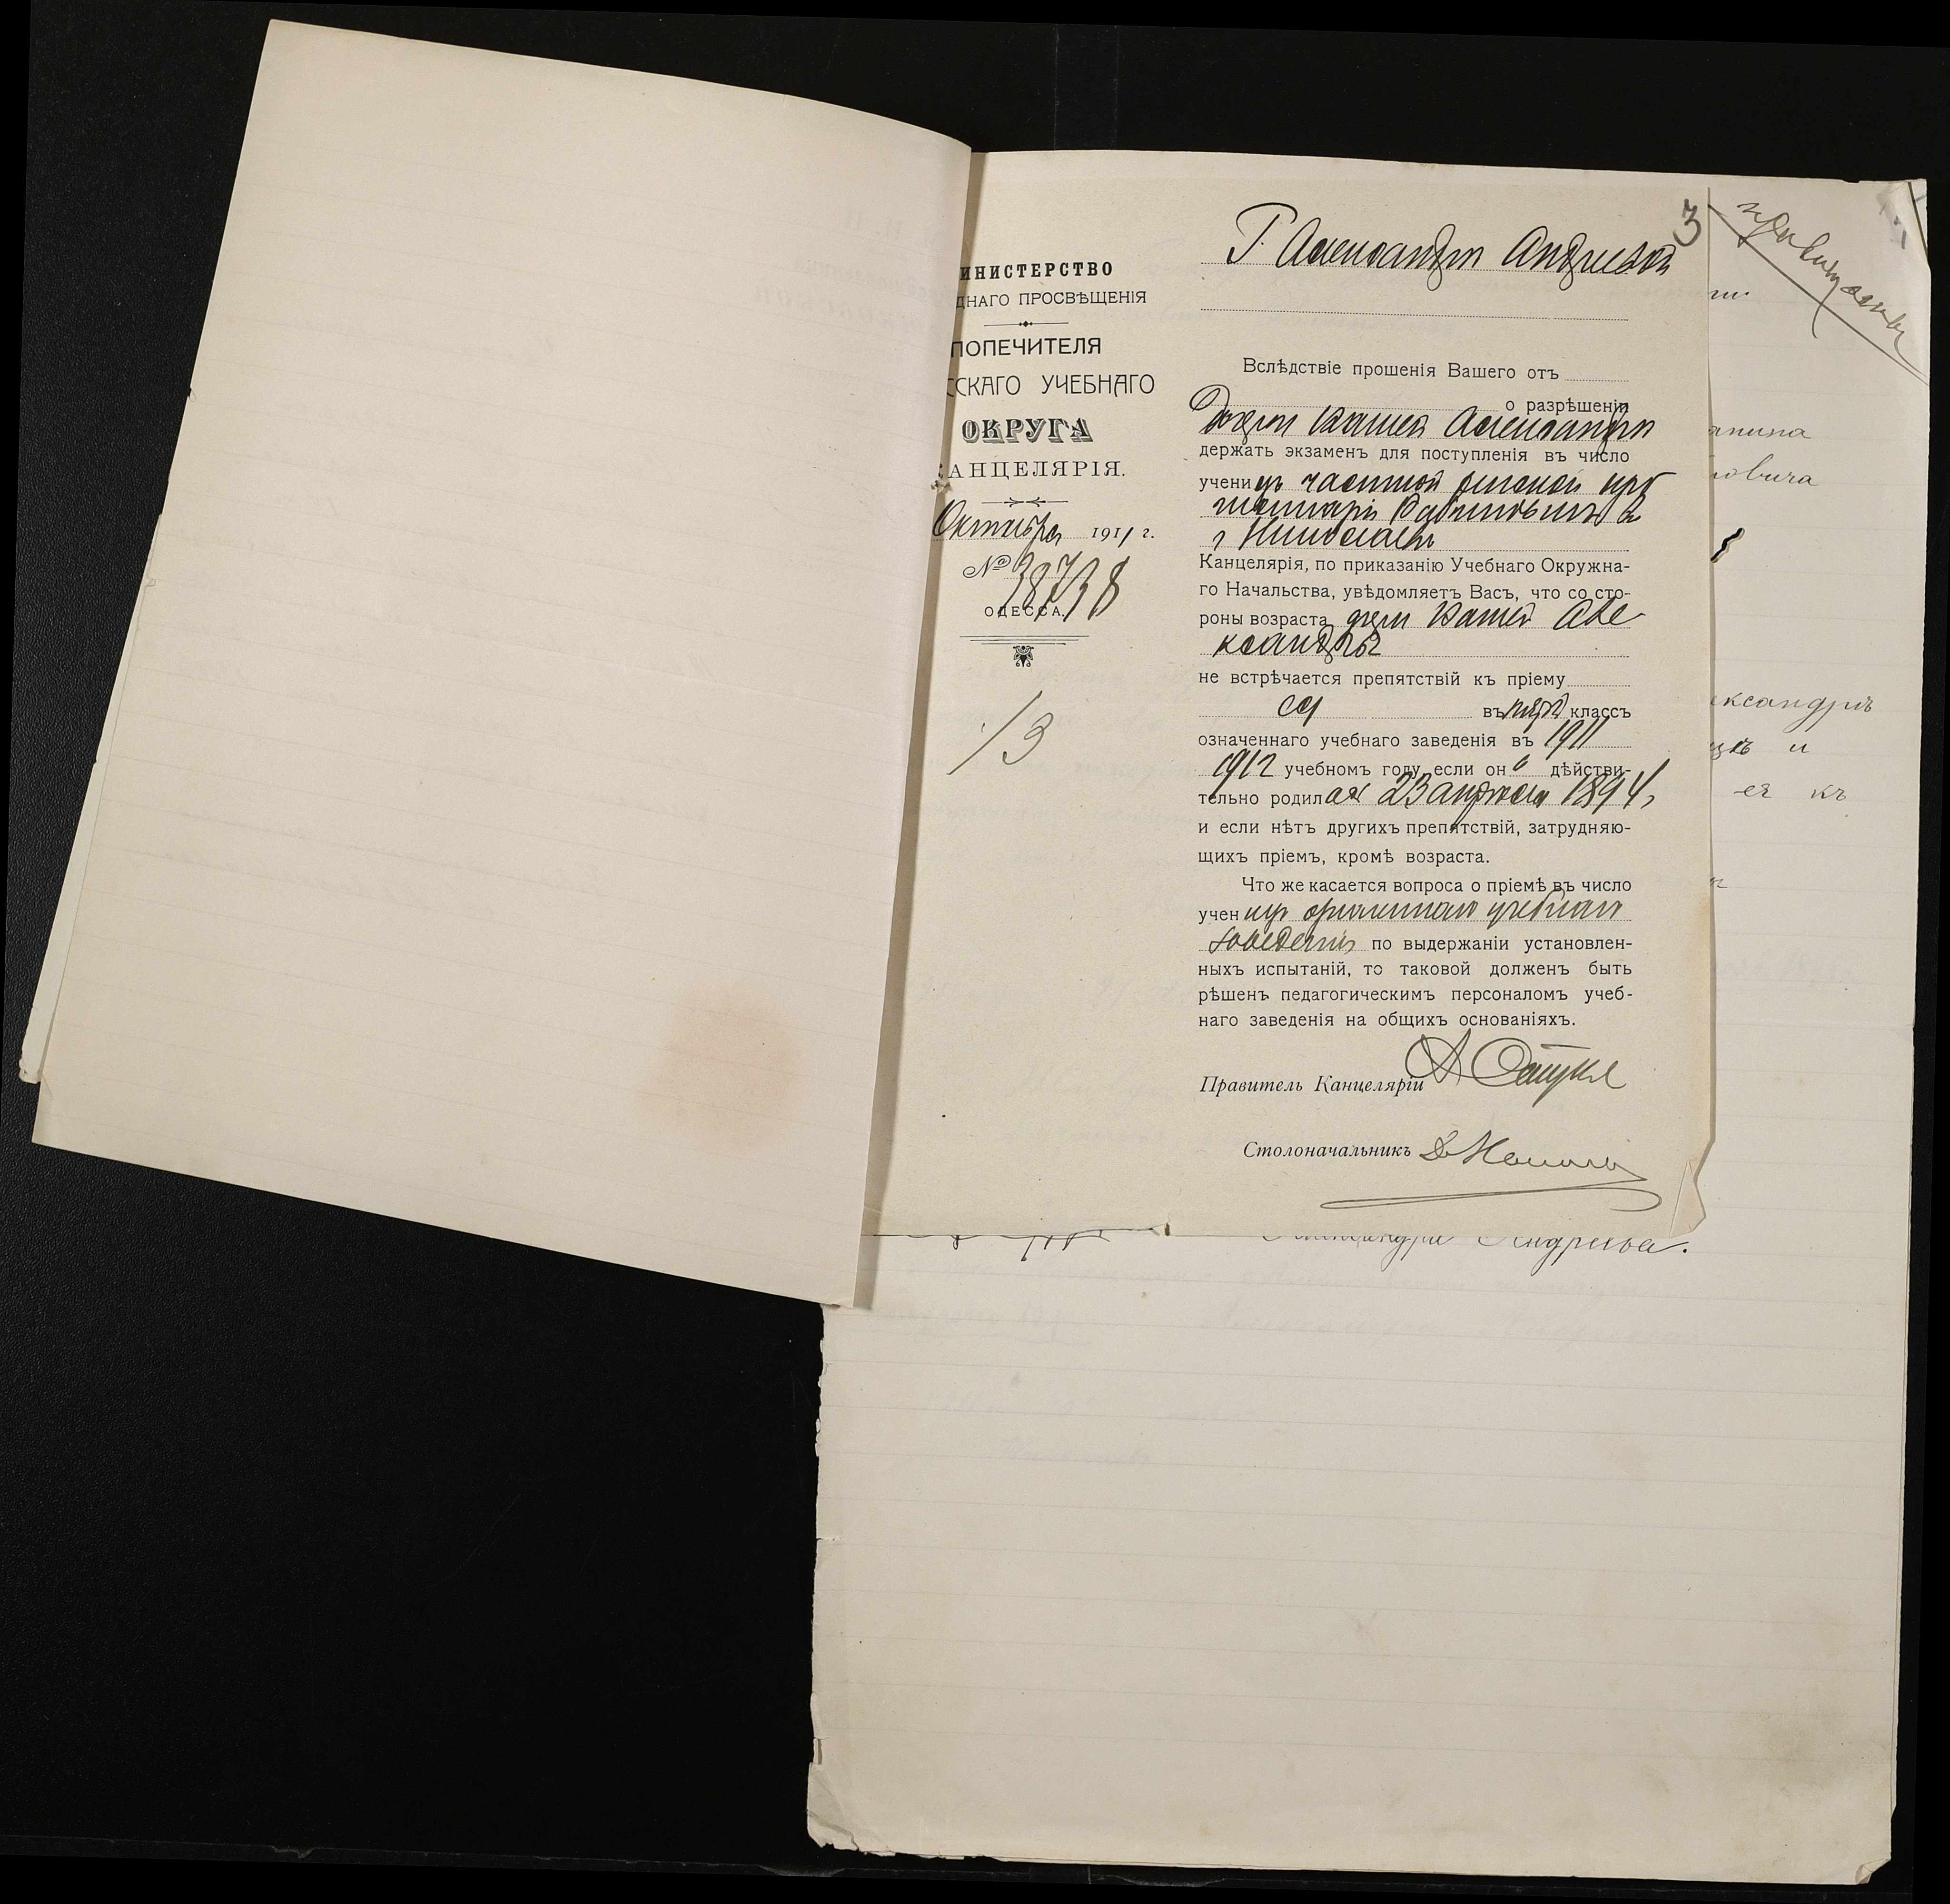 ИНИСТЕРСТВО
ДНАГО ПРОСВѢЩЕНІЯ
ПОПЕЧИТЕЛЯ
ССКАГО УЧЕБНАГО
ОКРУГА
КАНЦЕЛЯРІЯ.
Октября 1911 г.
№ 38738
ОДЕССА.
13
3
Г. Александрѣ Андреевой
Вслѣдствіе прошенія Вашего отъ
о разрѣшеніи
Дочери Вашей Александрѣ
держать экзаменъ для поступленія въ число
учениц частной женской про
гимназіи въ
г Николаевѣ
Канцелярія, по приказанію Учебнаго Окружна-
го Начальства, увѣдомляетъ Васъ, что со сто-
роны возраста дочери Вашей Але
ксандры
не встрѣчается препятствій къ пріему
ея въ классъ
означеннаго учебнаго заведенія въ 1911
1912 учебномъ году, если она дѣйстви-
тельно родилась 23 апрѣля 1894 г
и если нѣтъ другихъ препятствій, затрудняю-
щихъ пріемъ, кромѣ возраста.
Что же касается вопроса о пріемѣ въ число
учениц означеннаго учебнаго
заведенія по выдержаніи установлен-
ныхъ испытаній, то таковой долженъ быть
рѣшенъ педагогическимъ персоналомъ учеб-
наго заведенія на общихъ основаніяхъ.
Правитель Канцеляріи
Столоначальникъ
анина
овича
ександрѣ
и
ея къ
Александра Андреева.